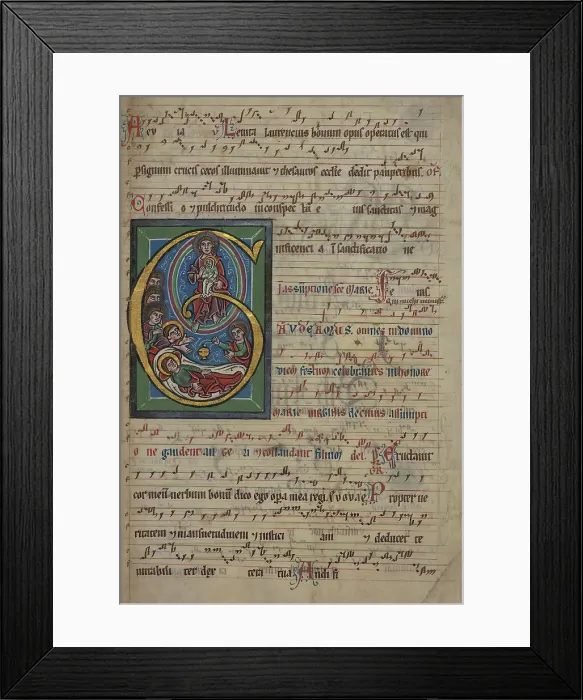 Aev ia v Levita laurencius bonum opus operatus est qui
p signum crucis cecos illuminavit & thesauros ecclie dedit pauperibus. of.
Confessi o & pulchritudo in conspec tu e ius sanctitas & mag
nificenci a i sanctificatio ne
I assuptione sce marie. e ius.
GAVDEAMVS. omnes in domino
diem festum celebrantes in honore
marie virginis de cuius assumpti
o ne gaudent an ge li & collaudant filium dei. Eructavit
cor meum verbum bonum dico ego opera mea regi. Evovae. Propter ve
ritatem & mansuetudinem & iustici am & deducet te
mirabili ter dex tera tua. Audi fi